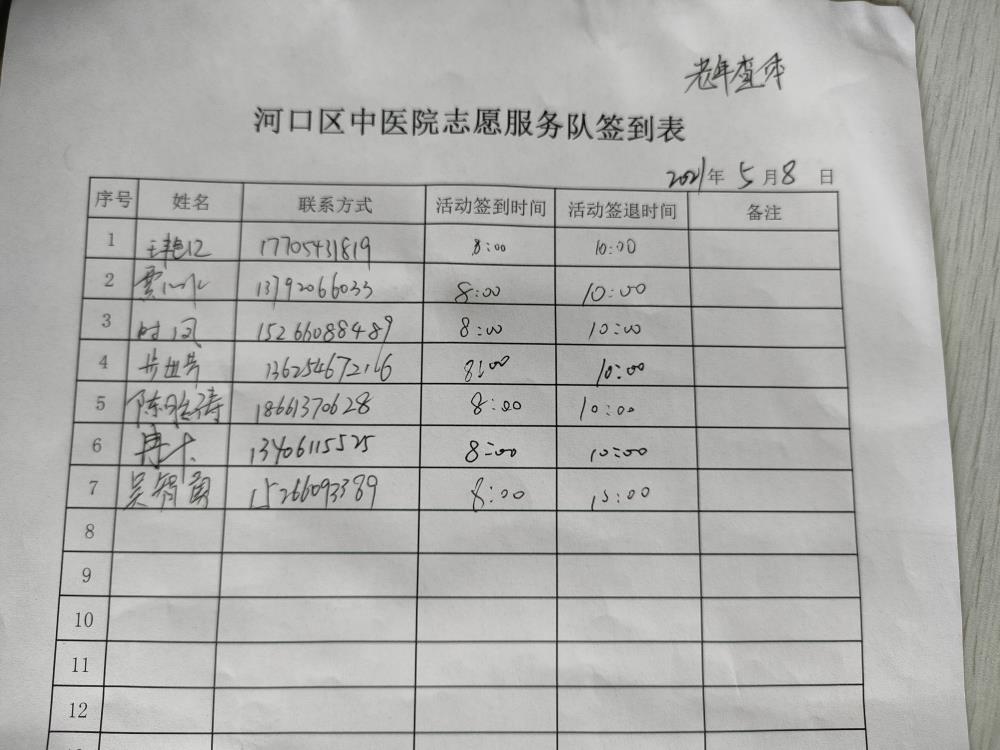 老年查体
河口区中医院志愿服务队签到表
2021年 5月8 日
序号 姓名 联系方式 活动签到时间 活动签退时间 备注
1 17705431819 8:00 10:00
2 13792066033 8:00 10:00
3 时风 15266088489 8:00 10:00
4 13625467216 8:00 10:00
5 陈雅涛 18661370628 8:00 10:00
6 13406115525 8:00 10:00
7 吴智勇 15266093389 8:00 10:00
8
9
10
11
12